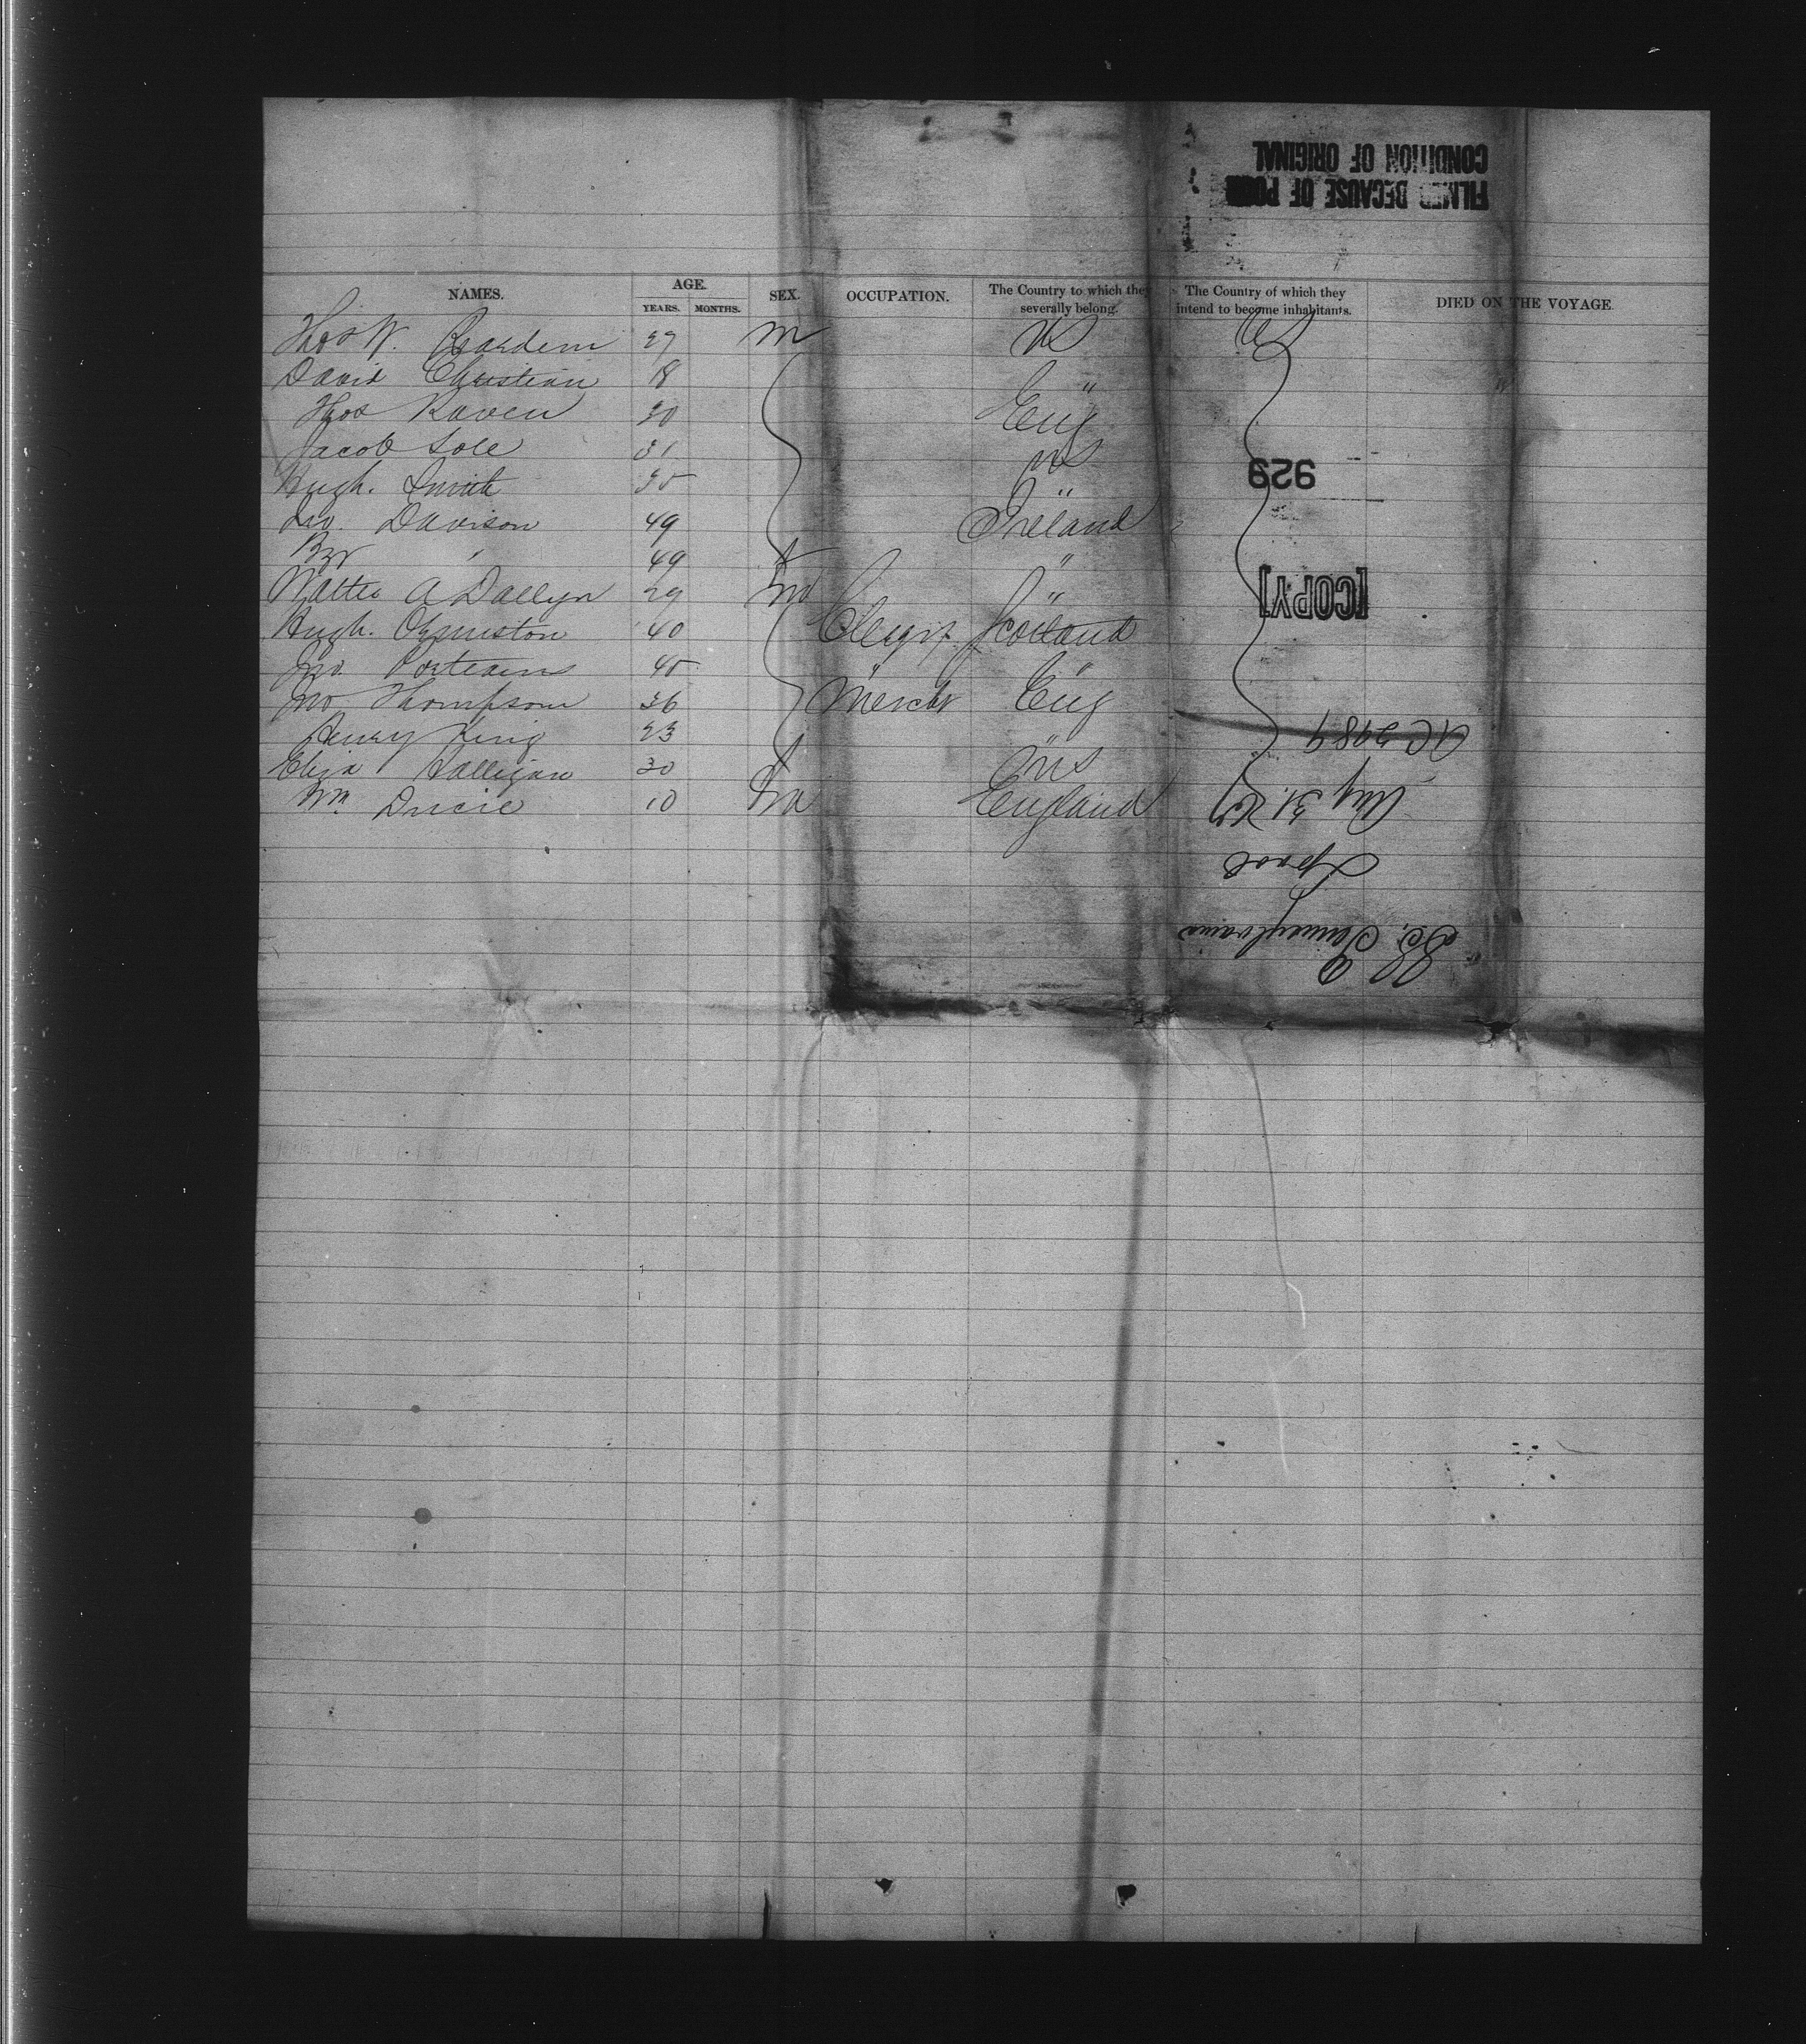 FILMED BECAUSE OF POOR
CONDITION OF ORIGINAL
NAMES. AGE. SEX. OCCUPATION. The Country to which they severally belong. The Country of which they intend to become inhabitants. DIED ON THE VOYAGE.
YEARS. MONTHS.
Thos W. 27 M US US
David Christian 18 "
Thos Raven 30 Eng
Jacob Sole 31 US
Hugh. Smith 35 "
Jno. Davison 49 Ireland
" 49 f "
Walter A Dallyn 29 M "
Hugh. Ormiston 40 Clergy. Scotland
Jno. Porteous 45 " "
Jno Thompson 36 Mercht Eng
Henry King 23 "
Eliza Halligan 30 f US
Wm 10 M England
929
[COPY]
Aug 31. 67
Lpool
SS. Pennsylvania